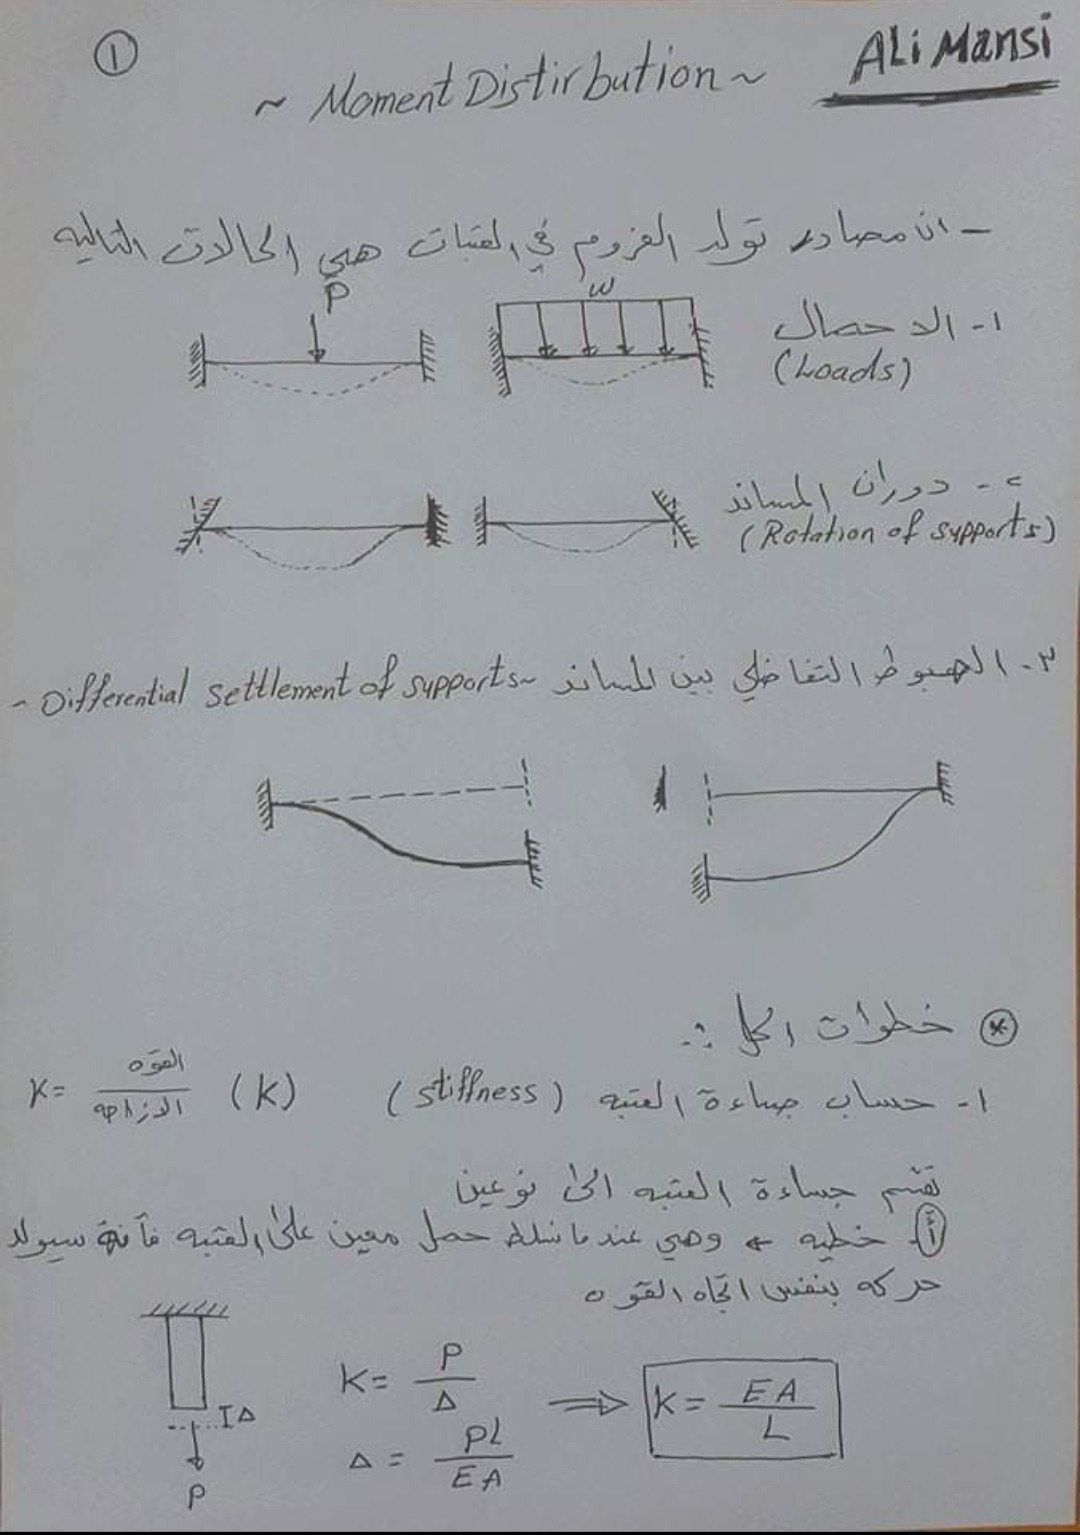 ①
ALi Mansi
~ Moment Distirbution ~
- ان مصادر تولد العزوم في العتبات هي الحالات التاليه
١- الاحمال
(Loads)
P
w
٢- دوران المساند
(Rotation of supports)
٣- الهبوط التفاضلي بين المساند ~ Differential settlement of supports ~
* خطوات الحل :-
١- حساب جساءة العتبه (stiffness) (K) K= القوه / الازاحه
تقسم جساءة العتبه الى نوعين
أ. خطيه وهي عندما نسلط حمل معين على العتبه فأنة سيولد
حركه بنفس اتجاه القوه
K= P/Δ ⟹ K= EA/L
Δ = PL/EA
Δ
P